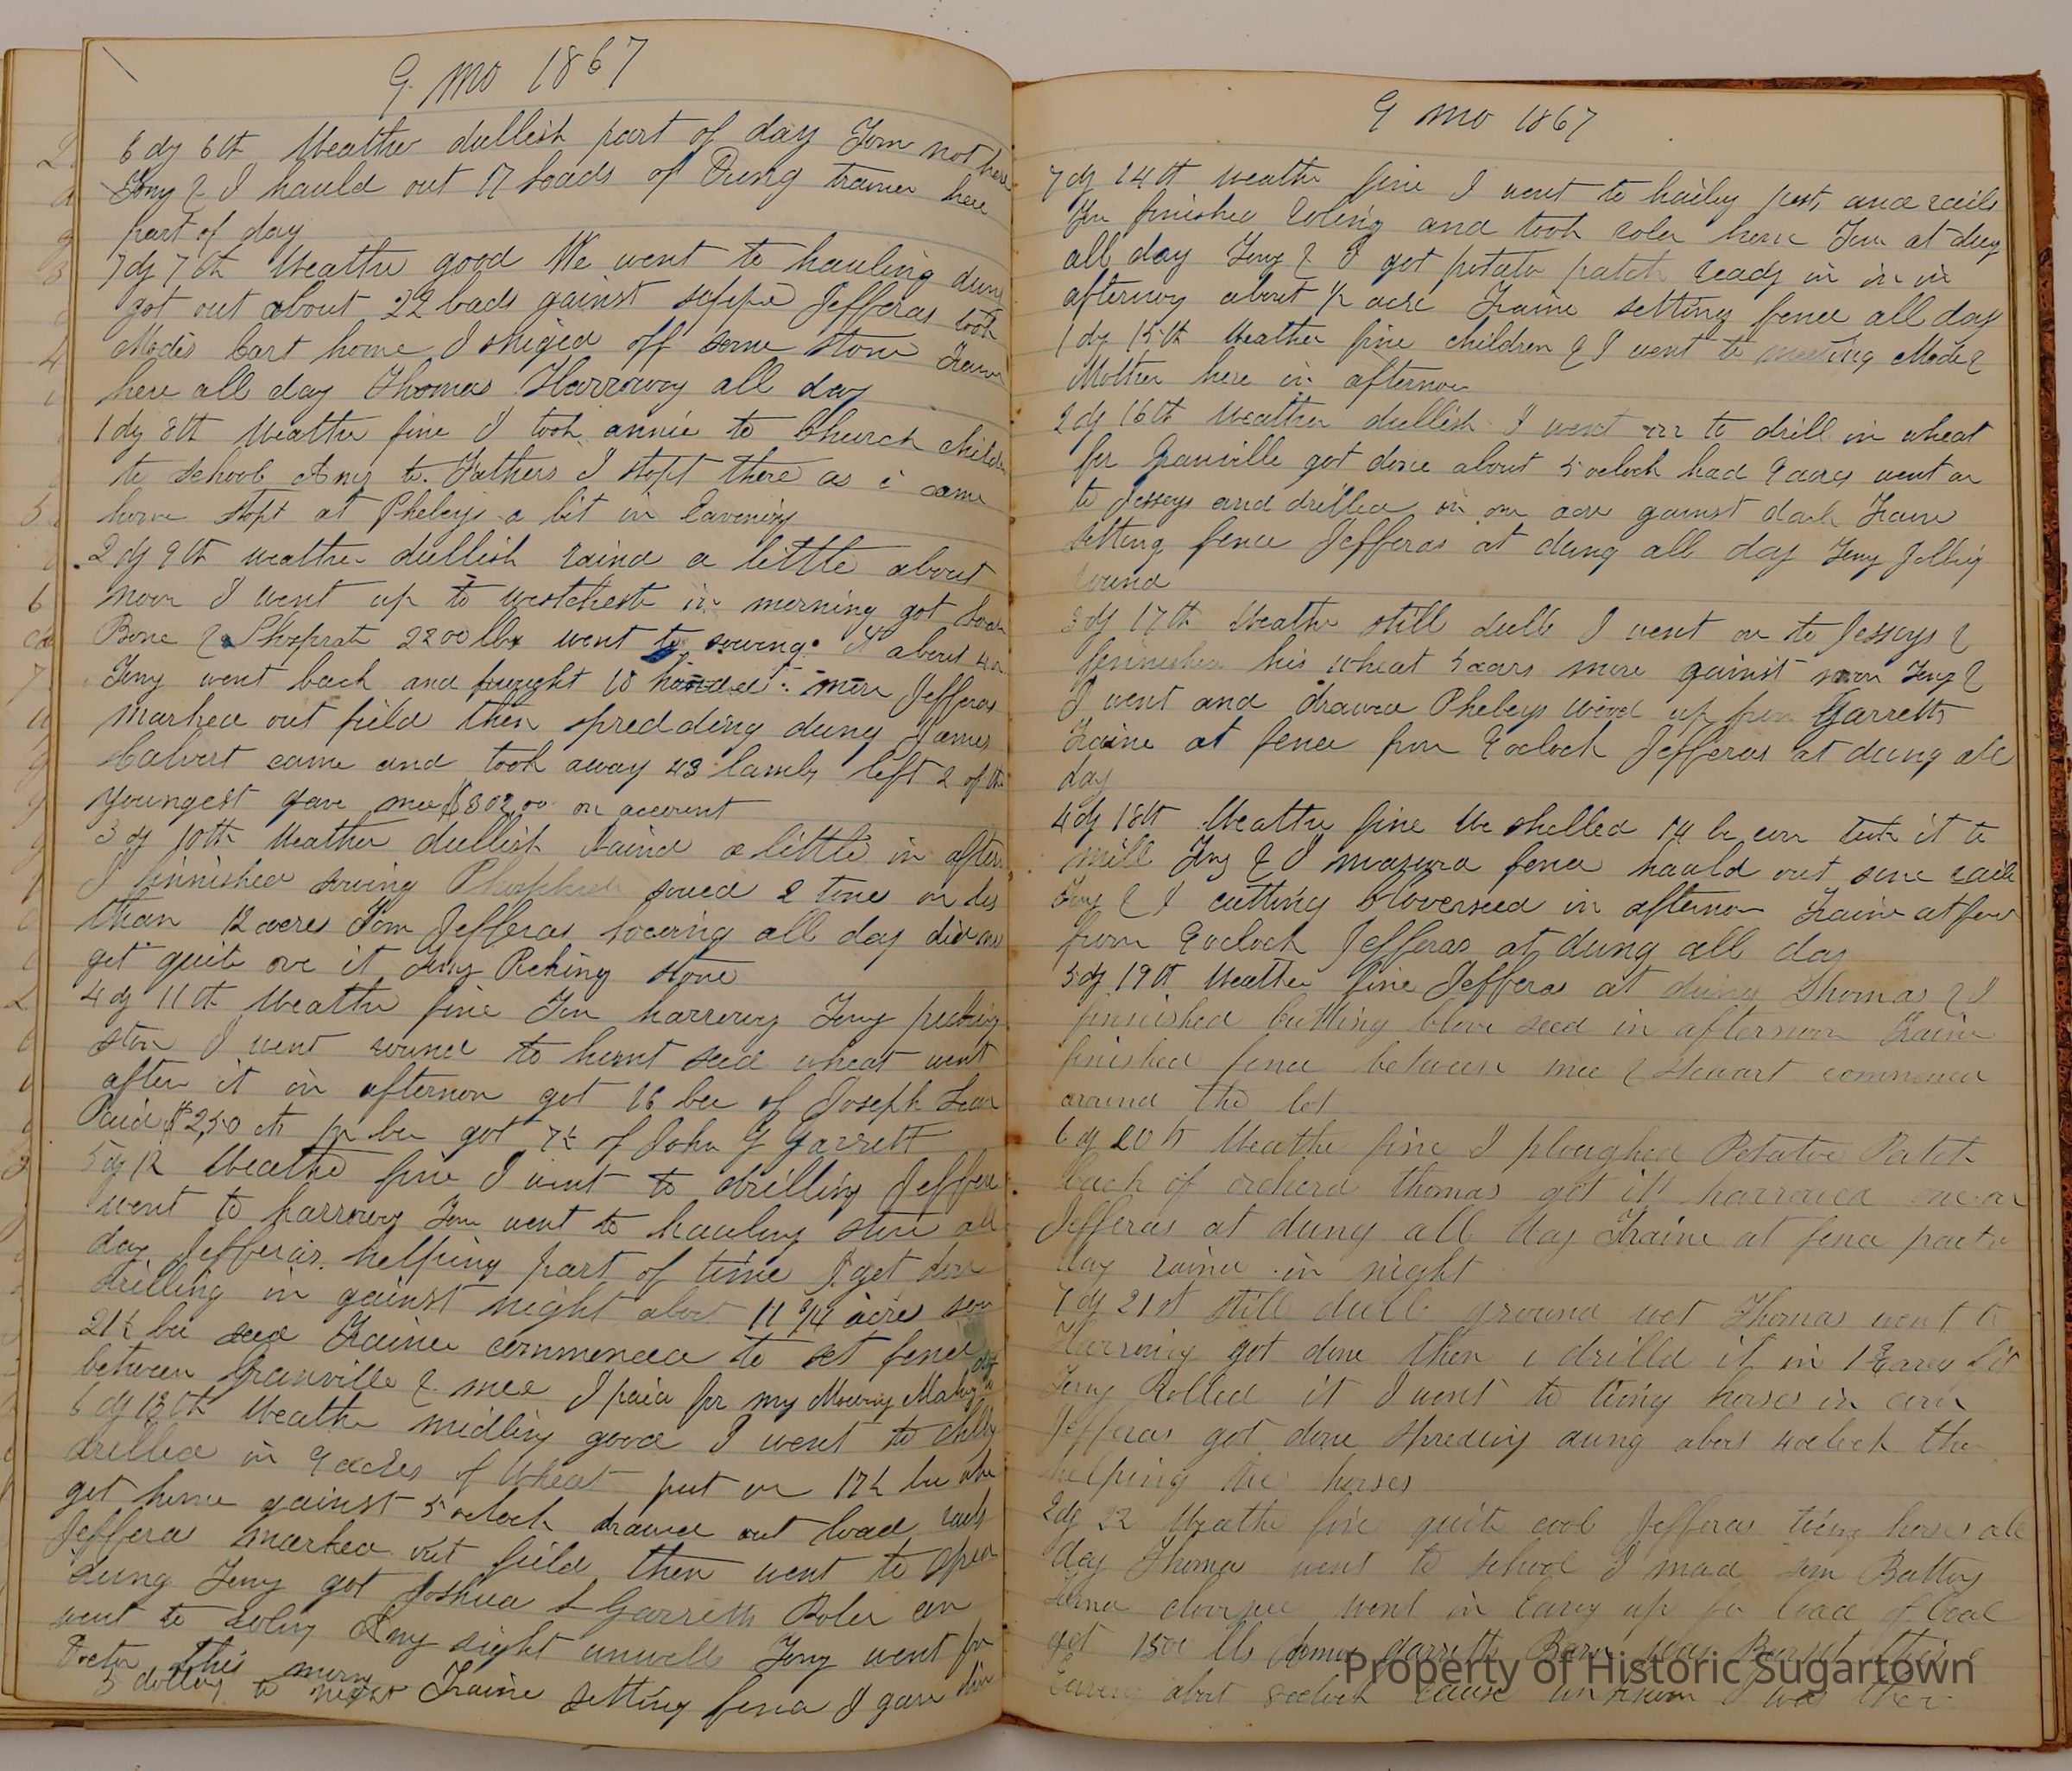 9 mo 1867
6 dy 6th Weather dullish part of day Tom not here
Tony & I hauld out 17 loads of Dung trainer here
part of day
7 dy 7th Weather good We went to hauling dung
got out about 22 loads gainst supper Jefferas took
Modes Cart home I off some stone
here all day Thomas Harrowing all day
1 dy 8th Weather fine I took annie to Church
to school to Fathers I stopt there as i came
home stopt at Phebeys a bit in Eavening
2 dy 9th weather dullish raind a little about
noon I went up to westchester in morning got
Bone & Phosprate 2200 lbs went to sowing it about
Tony went back and 10 more Jefferas
marked out field then spredding dung James
Calvert came and took away 43 lambs left 2 of the
youngest gave mee $302,00 on account
3 dy 10th Weather dullish Raind a little in after
I finnished sowing Phosphate sowed 2 tone on les
than 12 acres Tom Jefferas all day did not
get quite ove it Tony Picking stone
4 dy 11th Weather fine Tom harrowing Tony picking
ston I went round to hunt seed wheat went
after it in afternoon got 16 bu of Joseph
Paid $2,50 cts pr bu got 7½ of John G Garrett
5 dy 12 Weathe fine I went to drilling Jefferas
went to harrowing Tom went to hauling stone all
day Jefferas helping part of time I got done
drilling in gainst night about 11 acres
21½ bu seed Trainer commenced to set fence
between Granville & mee I paid for my Mowing
6 dy 13th Weathe midling good I went to
drilled in 9 acres of Wheat put on 17½ bu
got home gainst 5 oclock drawed out load rails
Jeffera marked out field then went to spred
dung Tony got Joshua L Garretts Roler an
went to roling right unwell Tony went for
Doctor this morn
5 dollars to night Traine setting fence I gave him
9 mo 1867
7 dy 14th weathe fine I went to hauling post, and rails
Tom finished roling and took roler home Tom at dung
all day Tony & I got potato patch ready in in in
afternoon about ½ acre Traine setting fence all day
1 dy 15th Weather fine children & I went to meeting Mode &
Mother here in afternoon
2 dy 16th weather dullish I went to drill in wheat
for Granville got done about 5 oclock had 9 acres went on
to Jesseys and drilled in one acre gainst dark Traine
setting fence Jefferas at dung all day Tony Jobbing
round
3 dy 17th Weathe still dull I went on to Jesseys &
finnished his wheat 5 acars more gainst noon Tony &
I went and drawed Phebeys wood up from Garretts
Traine at fence from 9 oclock Jefferas at dung all
day
4 dy 18th Weathe fine We shelled 14 bu corn took it to
mill Tony & I fence hauld out some rails
Tony & I cutting Cloverseed in afternoon Traine at fence
from 9 oclock Jefferas at dung all day
5 dy 19th Weather fine Jefferas at dung Thomas & I
finnished Cutting Clove seed in afternoon Traine
finished fence between mee & Stewart commenced
around the lot
6 dy 20th Weathe fine I ploughed Potatoe Patch
back of orcherd thomas got it harrowed once over
Jefferas at dung all day Traine at fence part
day rained in night
7 dy 21st still dull ground wet Thomas went to
Harrowing got done then i drilld it in
Tony Rolled it I went to tieing horses in corn
Jefferas got done spreding dung about 4 oclock then
helping tie horses
2 dy 22 Weathe fine quite cool Jefferas tieing horses all
day Thomas went to school I mad som
went in up for load of Coal
got 1500 lbs garretts Barn was Burnt
about 8 oclock cause unknown I was there
Property of Historic Sugartown